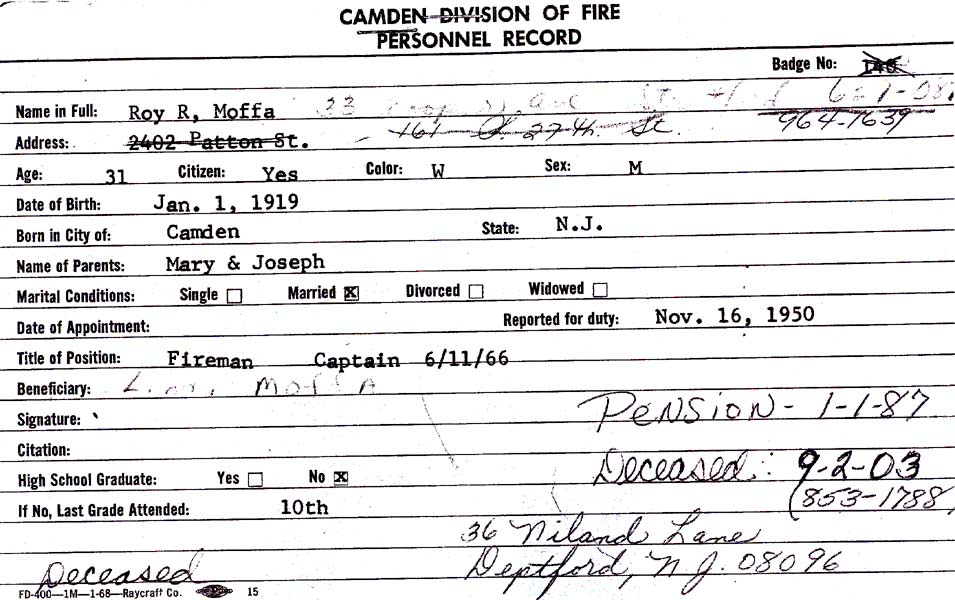 CAMDEN DIVISION OF FIRE
PERSONNEL RECORD
Badge No: 148
Name in Full: Roy R, Moffa
964-1639
Address: 2402 Patton St. 27th St.
Age: 31 Citizen: Yes Color: W Sex: M
Date of Birth: Jan. 1, 1919
Born in City of: Camden State: N.J.
Name of Parents: Mary & Joseph
Marital Conditions: Single Married X Divorced Widowed
Date of Appointment: Reported for duty: Nov. 16, 1950
Title of Position: Fireman Captain 6/11/66
Beneficiary: MOFFA
Signature: PENSION - 1-1-87
Citation:
Deceased: 9-2-03
High School Graduate: Yes No X
(853-1788
If No, Last Grade Attended: 10th
36 Niland Lane
Deptford, N.J. 08096
Deceased
FD-400—1M—1-68—Raycraft Co. 15